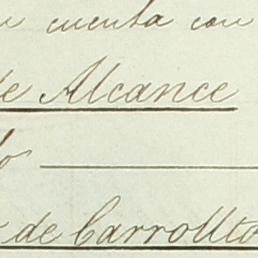 cuenta con
de Alcance
de Carrollto